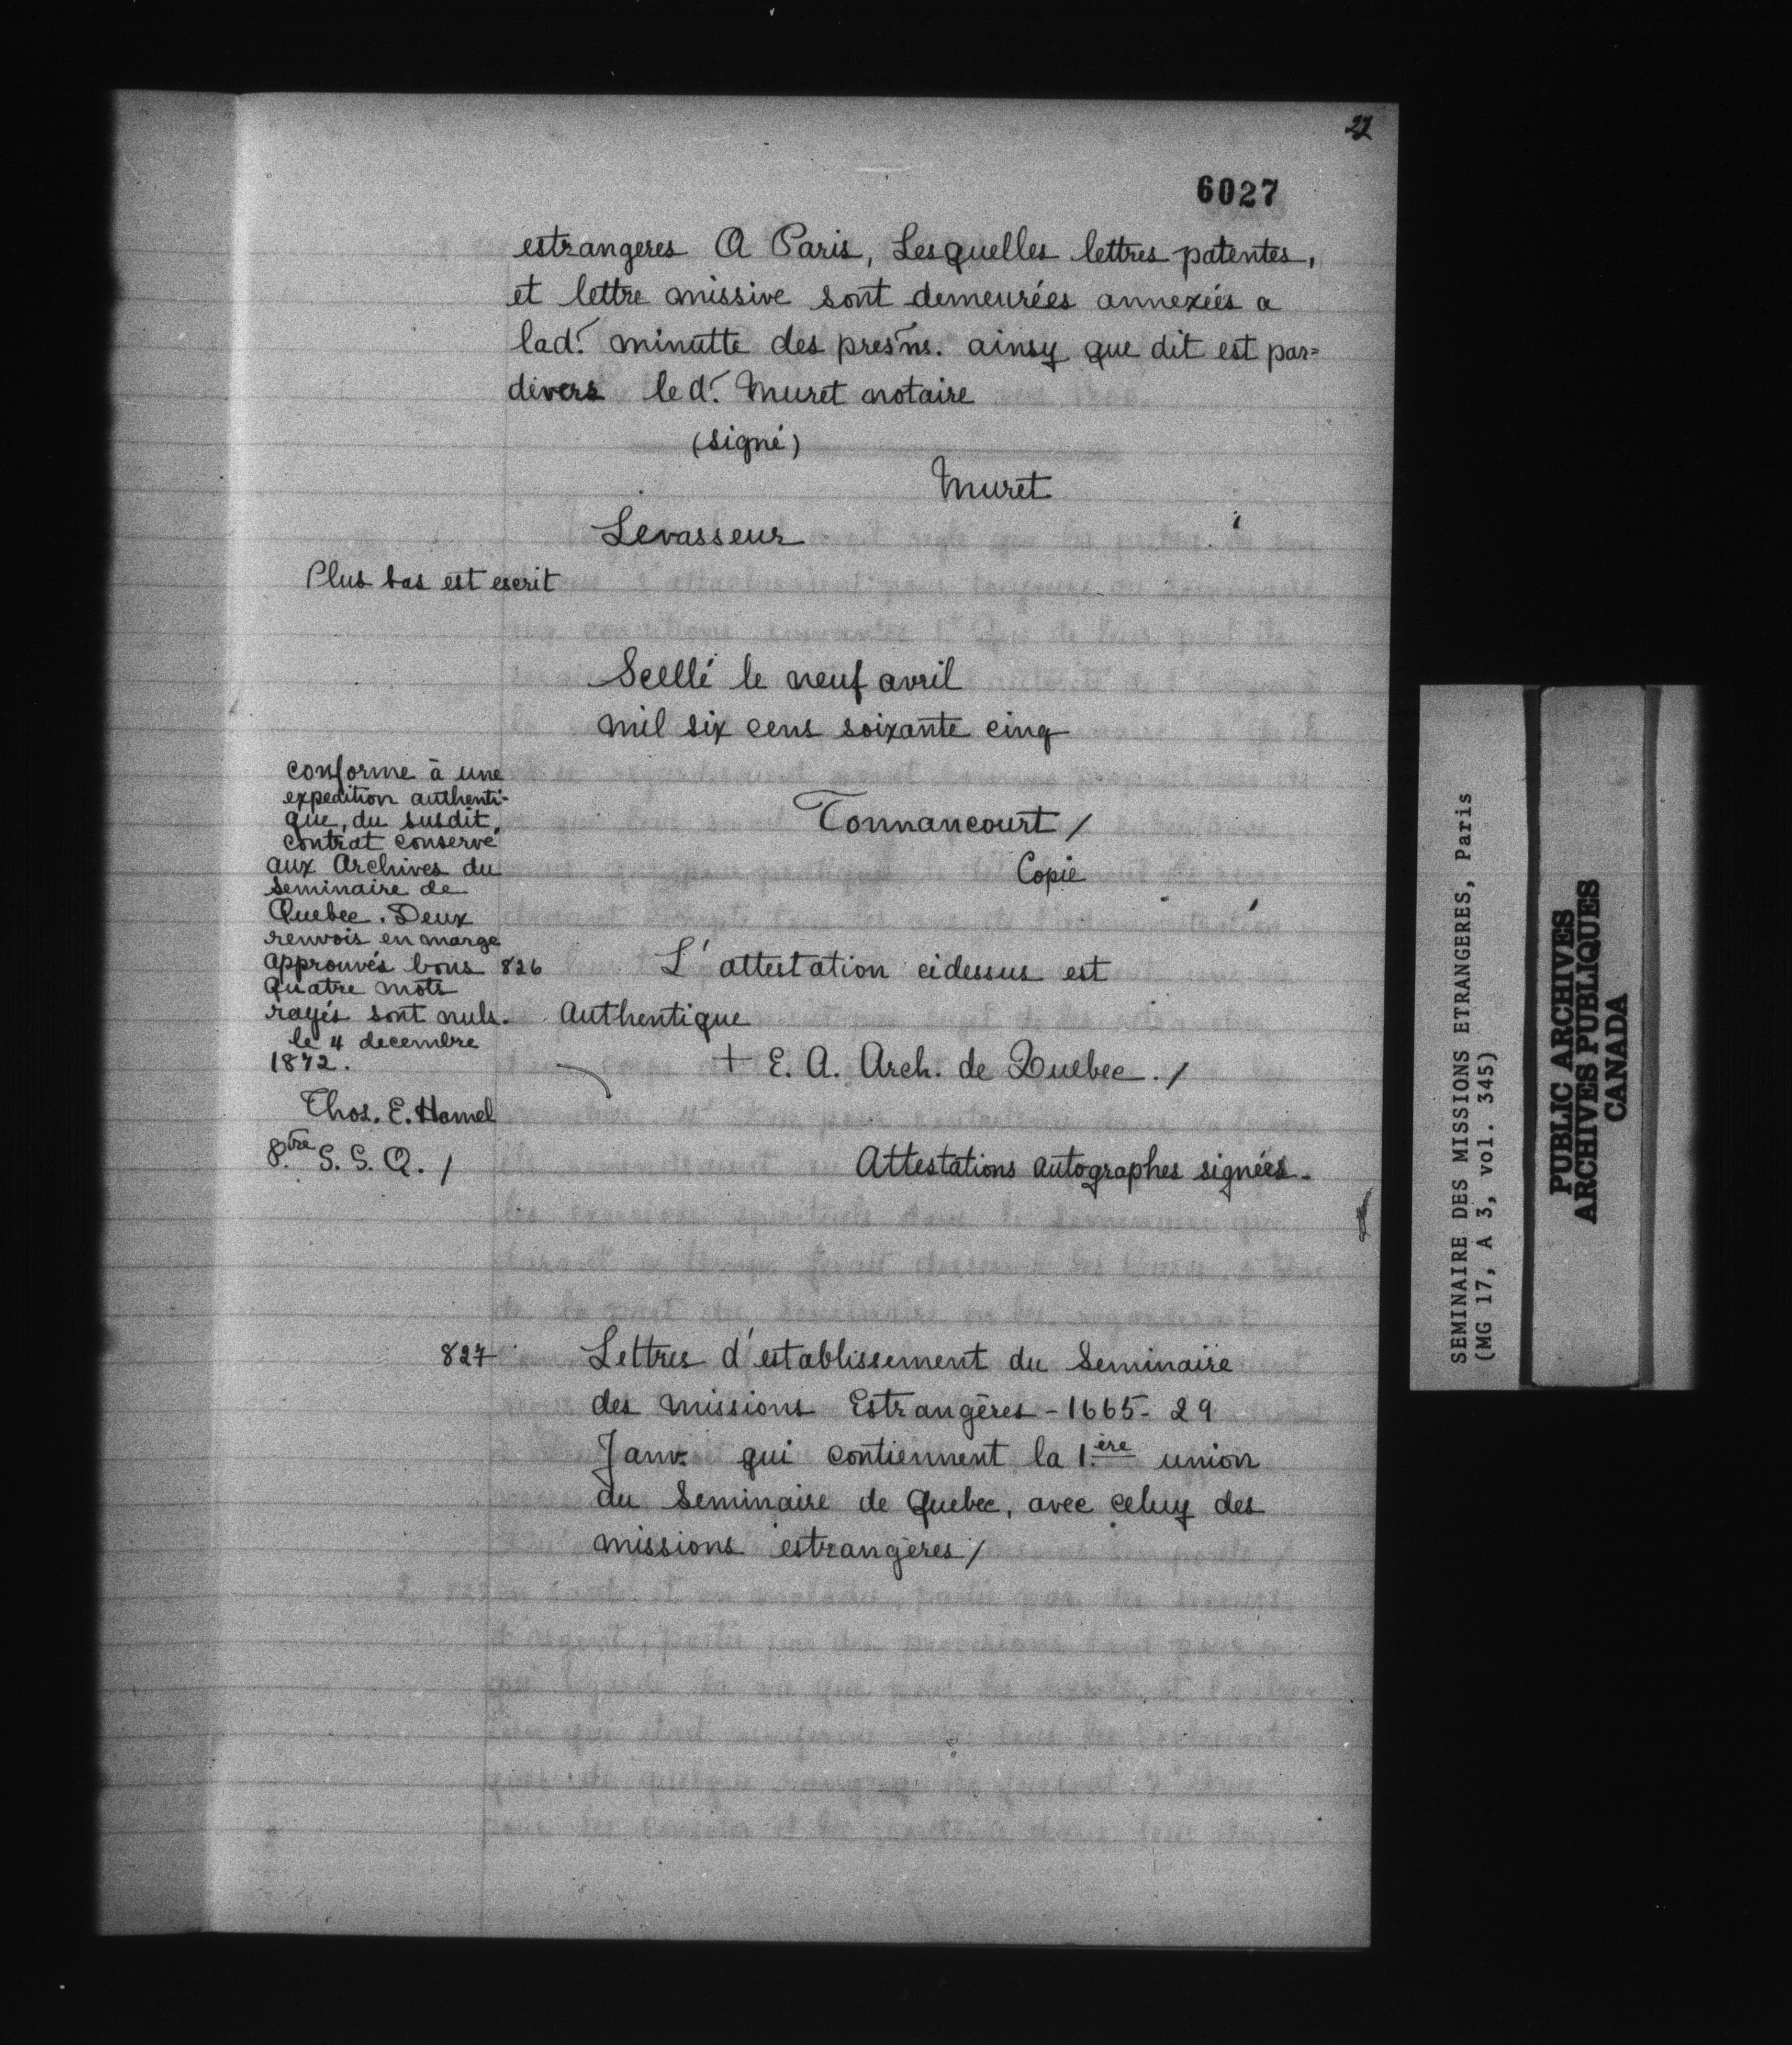 27
6027
estrangeres A Paris, Lesquelles lettres patentes,
et lettre missive sont demeurées annexées a
lad. minutte des presñs. ainsy que dit est par=
devers le d. Muret notaire
(signé)
Muret
Levasseur
Plus bas est escrit
Scellé le neuf avril
mil six cens soixante cinq
Tonnancourt /
Copie
conforme à une
expedition authenti-
que, du susdit,
contrat conservé
aux Archives du
Seminaire de
Quebec. Deux
renvois en marge
approuvés bons
quatre mots
rayés sont nuls.
le 4 decembre
1872.
Thos. E. Hamel
ptre S. S. Q. /
826 L'attestation cidessus est
Authentique
+ E. A. Arch. de Quebec. /
Attestations autographes signées.
827 Lettres d'establissement du Seminaire
des missions Estrangères - 1665 - 29
Janv. qui contiennent la 1.ère union
du Seminaire de Quebec, avec celuy des
missions estrangères /
SEMINAIRE DES MISSIONS ETRANGERES, Paris
(MG 17, A 3, vol. 345)
PUBLIC ARCHIVES
ARCHIVES PUBLIQUES
CANADA